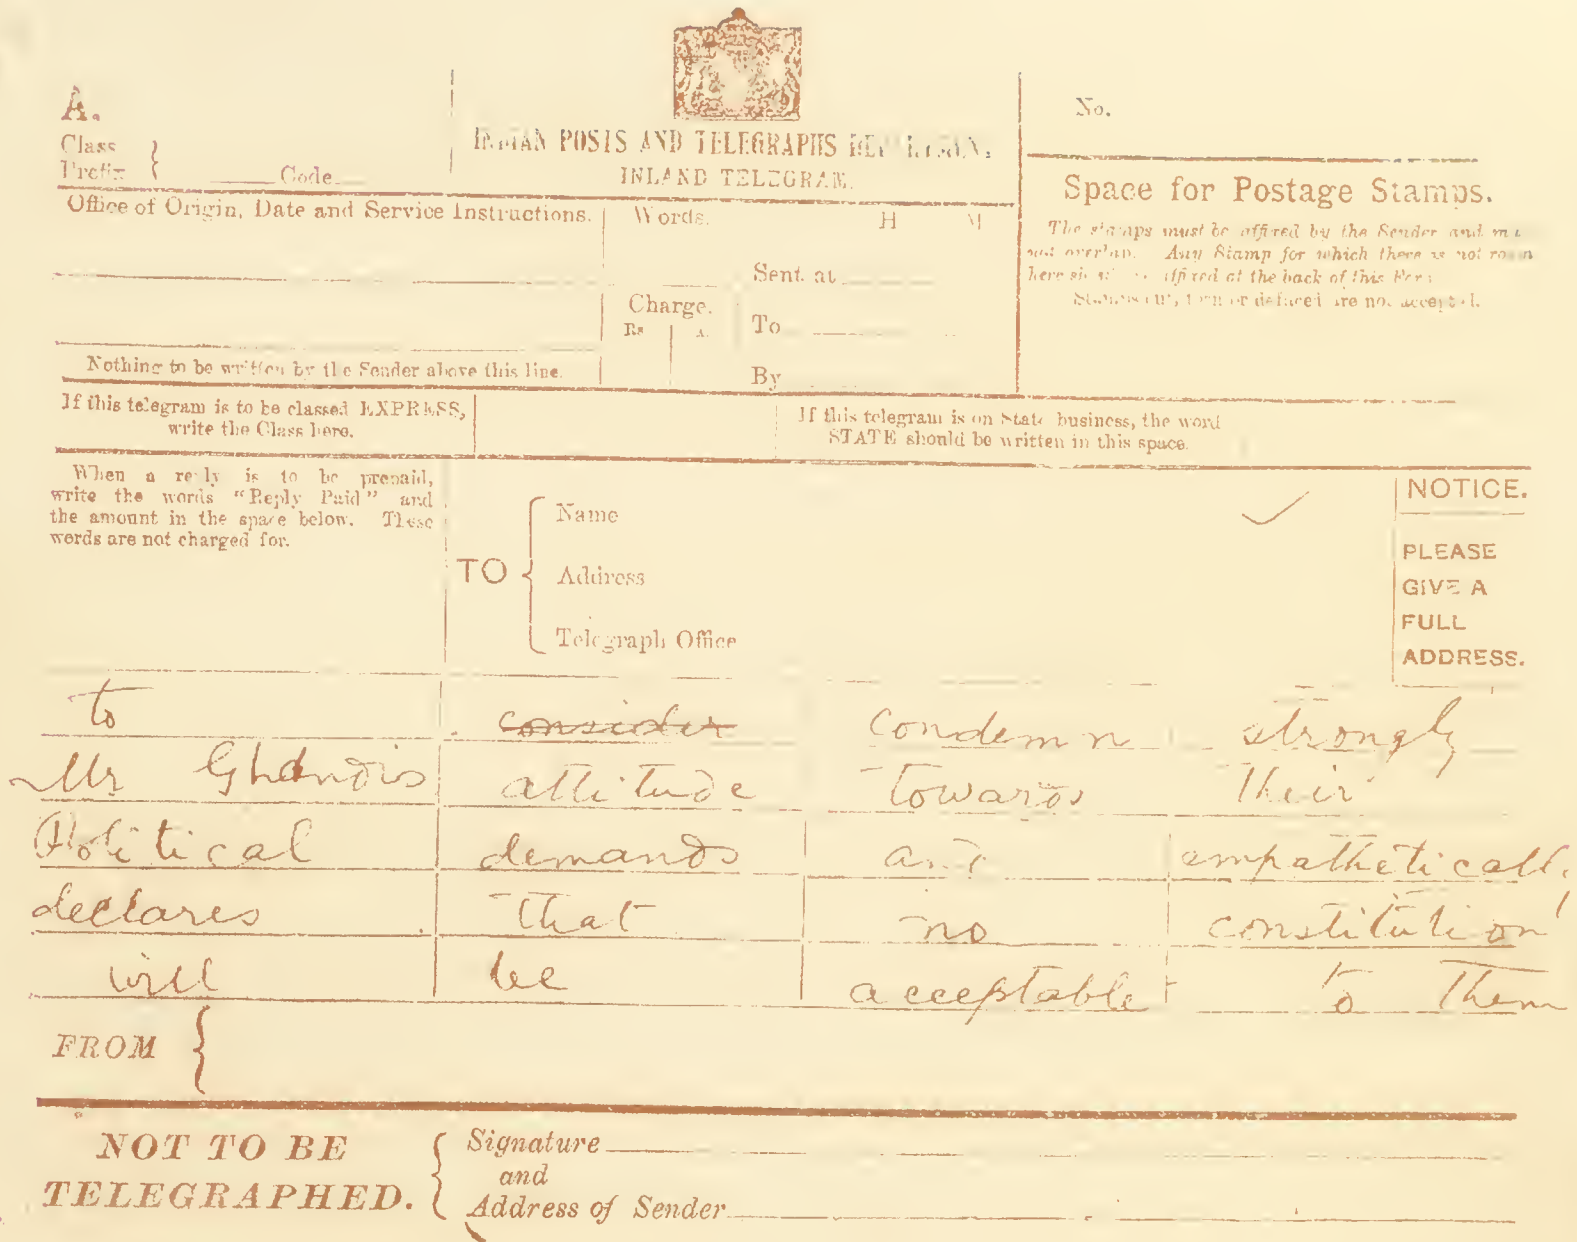 A.
Class
Prefix
Code
INDIAN POSTS AND TELEGRAPHS
INLAND TELEGRAM.
No.
Office of Origin, Date and Service Instructions.
Words.
H M
Sent at
Charge.
Rs A.
To
By
Space for Postage Stamps.
The stamps must be affixed by the Sender and
not overlap. Any Stamp for which there is not room
here affixed at the back of this Form
Stamps cut, torn or defaced are not accepted.
Nothing to be written by the Sender above this line.
If this telegram is to be classed EXPRESS,
write the Class here.
If this telegram is on State business, the word
STATE should be written in this space.
When a reply is to be prepaid,
write the words "Reply Paid" and
the amount in the space below. These
words are not charged for.
TO
Name
Address
Telegraph Office
NOTICE.
PLEASE
GIVE A
FULL
ADDRESS.
to consider condemn strongly
Mr Ghandis attitude towards their
Political demands and empathetically
declares that no constitution
will be acceptable to them
FROM
NOT TO BE
TELEGRAPHED.
Signature
and
Address of Sender